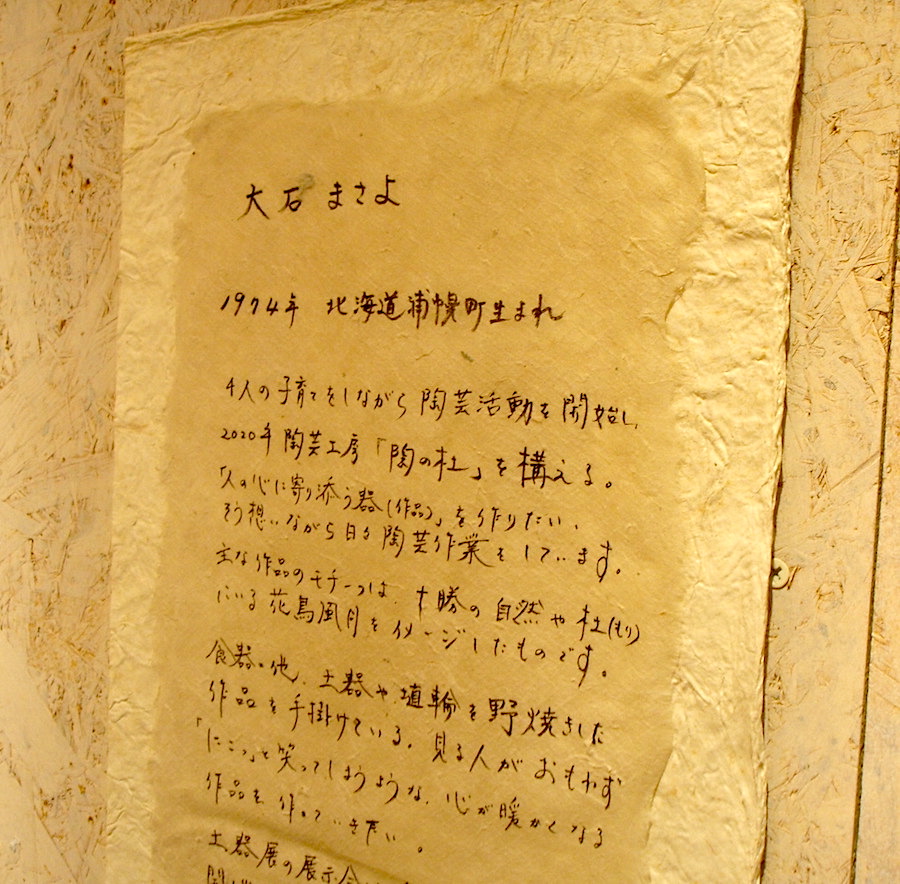 大石 まさよ
1974年 北海道浦幌町生まれ
4人の子育てをしながら 陶芸活動を開始し、
2020年 陶芸工房「陶の杜」を構える。
「人の心に寄り添う器(作品)」を作りたい、
そう想いながら日々陶芸作業をしています。
主な作品のモチーフは、十勝の自然や杜(もり)
にいる花鳥風月をイメージしたものです。
食器の他、土器や埴輪を野焼きした
作品を手掛けている。見る人がおもわず
「にこっ」と笑ってしまうような、心が暖かくなる
作品を作っていきたい。
土器展の展示会